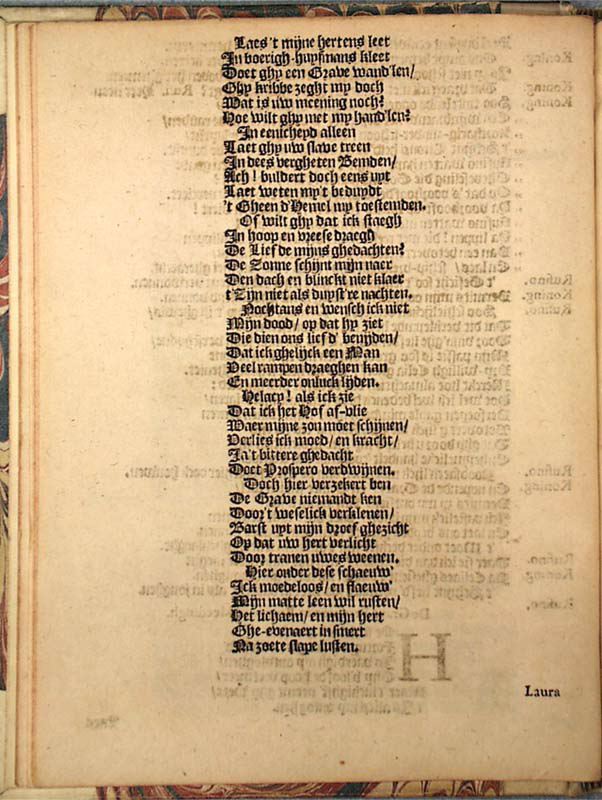 Laes 't mijne hertens leet
In boerigh-huysmans kleet
Doet ghy een Grave wand'len/
Ghy kribbe zeght my doch
Wat is uw meening noch?
Hoe wilt ghy met my hand'len?
In eenicheyd alleen
Laet ghy uw slave treen
In dees vergheten Bemden/
Ach! buldert doch eens uyt
Laet weten my't beduydt
't Gheen d'Hemel my toestemden.
Of wilt ghy dat ick staegh
In hoop en vreese draegh
De Liefde mijns ghedachten?
De Zonne schijnt mijn naer
Den dach en blinckt niet klaer
t'Zijn niet als duyst're nachten.
Nochtans en wensch ick niet
Mijn dood/ op dat hy ziet
Die dien ons lief d' benijden/
Dat ick ghelijck een Man
Veel rampen draeghen kan
En meerder onluck lijden.
Helacy! als ick zie
Dat ick het Hof af-vlie
Waer mijne zon moet schijnen/
Verlies ick moed/ en kracht/
Ja't bittere ghedacht
Doet Prospero verdwijnen.
Doch hier verzekert ben
De Grave niemandt ken
Door't weselick verklenen/
Barst uyt mijn droef ghezicht
Op dat uw hert verlicht
Door tranen uwes weenen.
Hier onder dese schaeuw'
Ick moedeloos/ en flaeuw'
Mijn matte leen wil rusten/
Het lichaem/ en mijn hert
Ghe-evenaert in smert
Na zoete slape lusten.
Laura